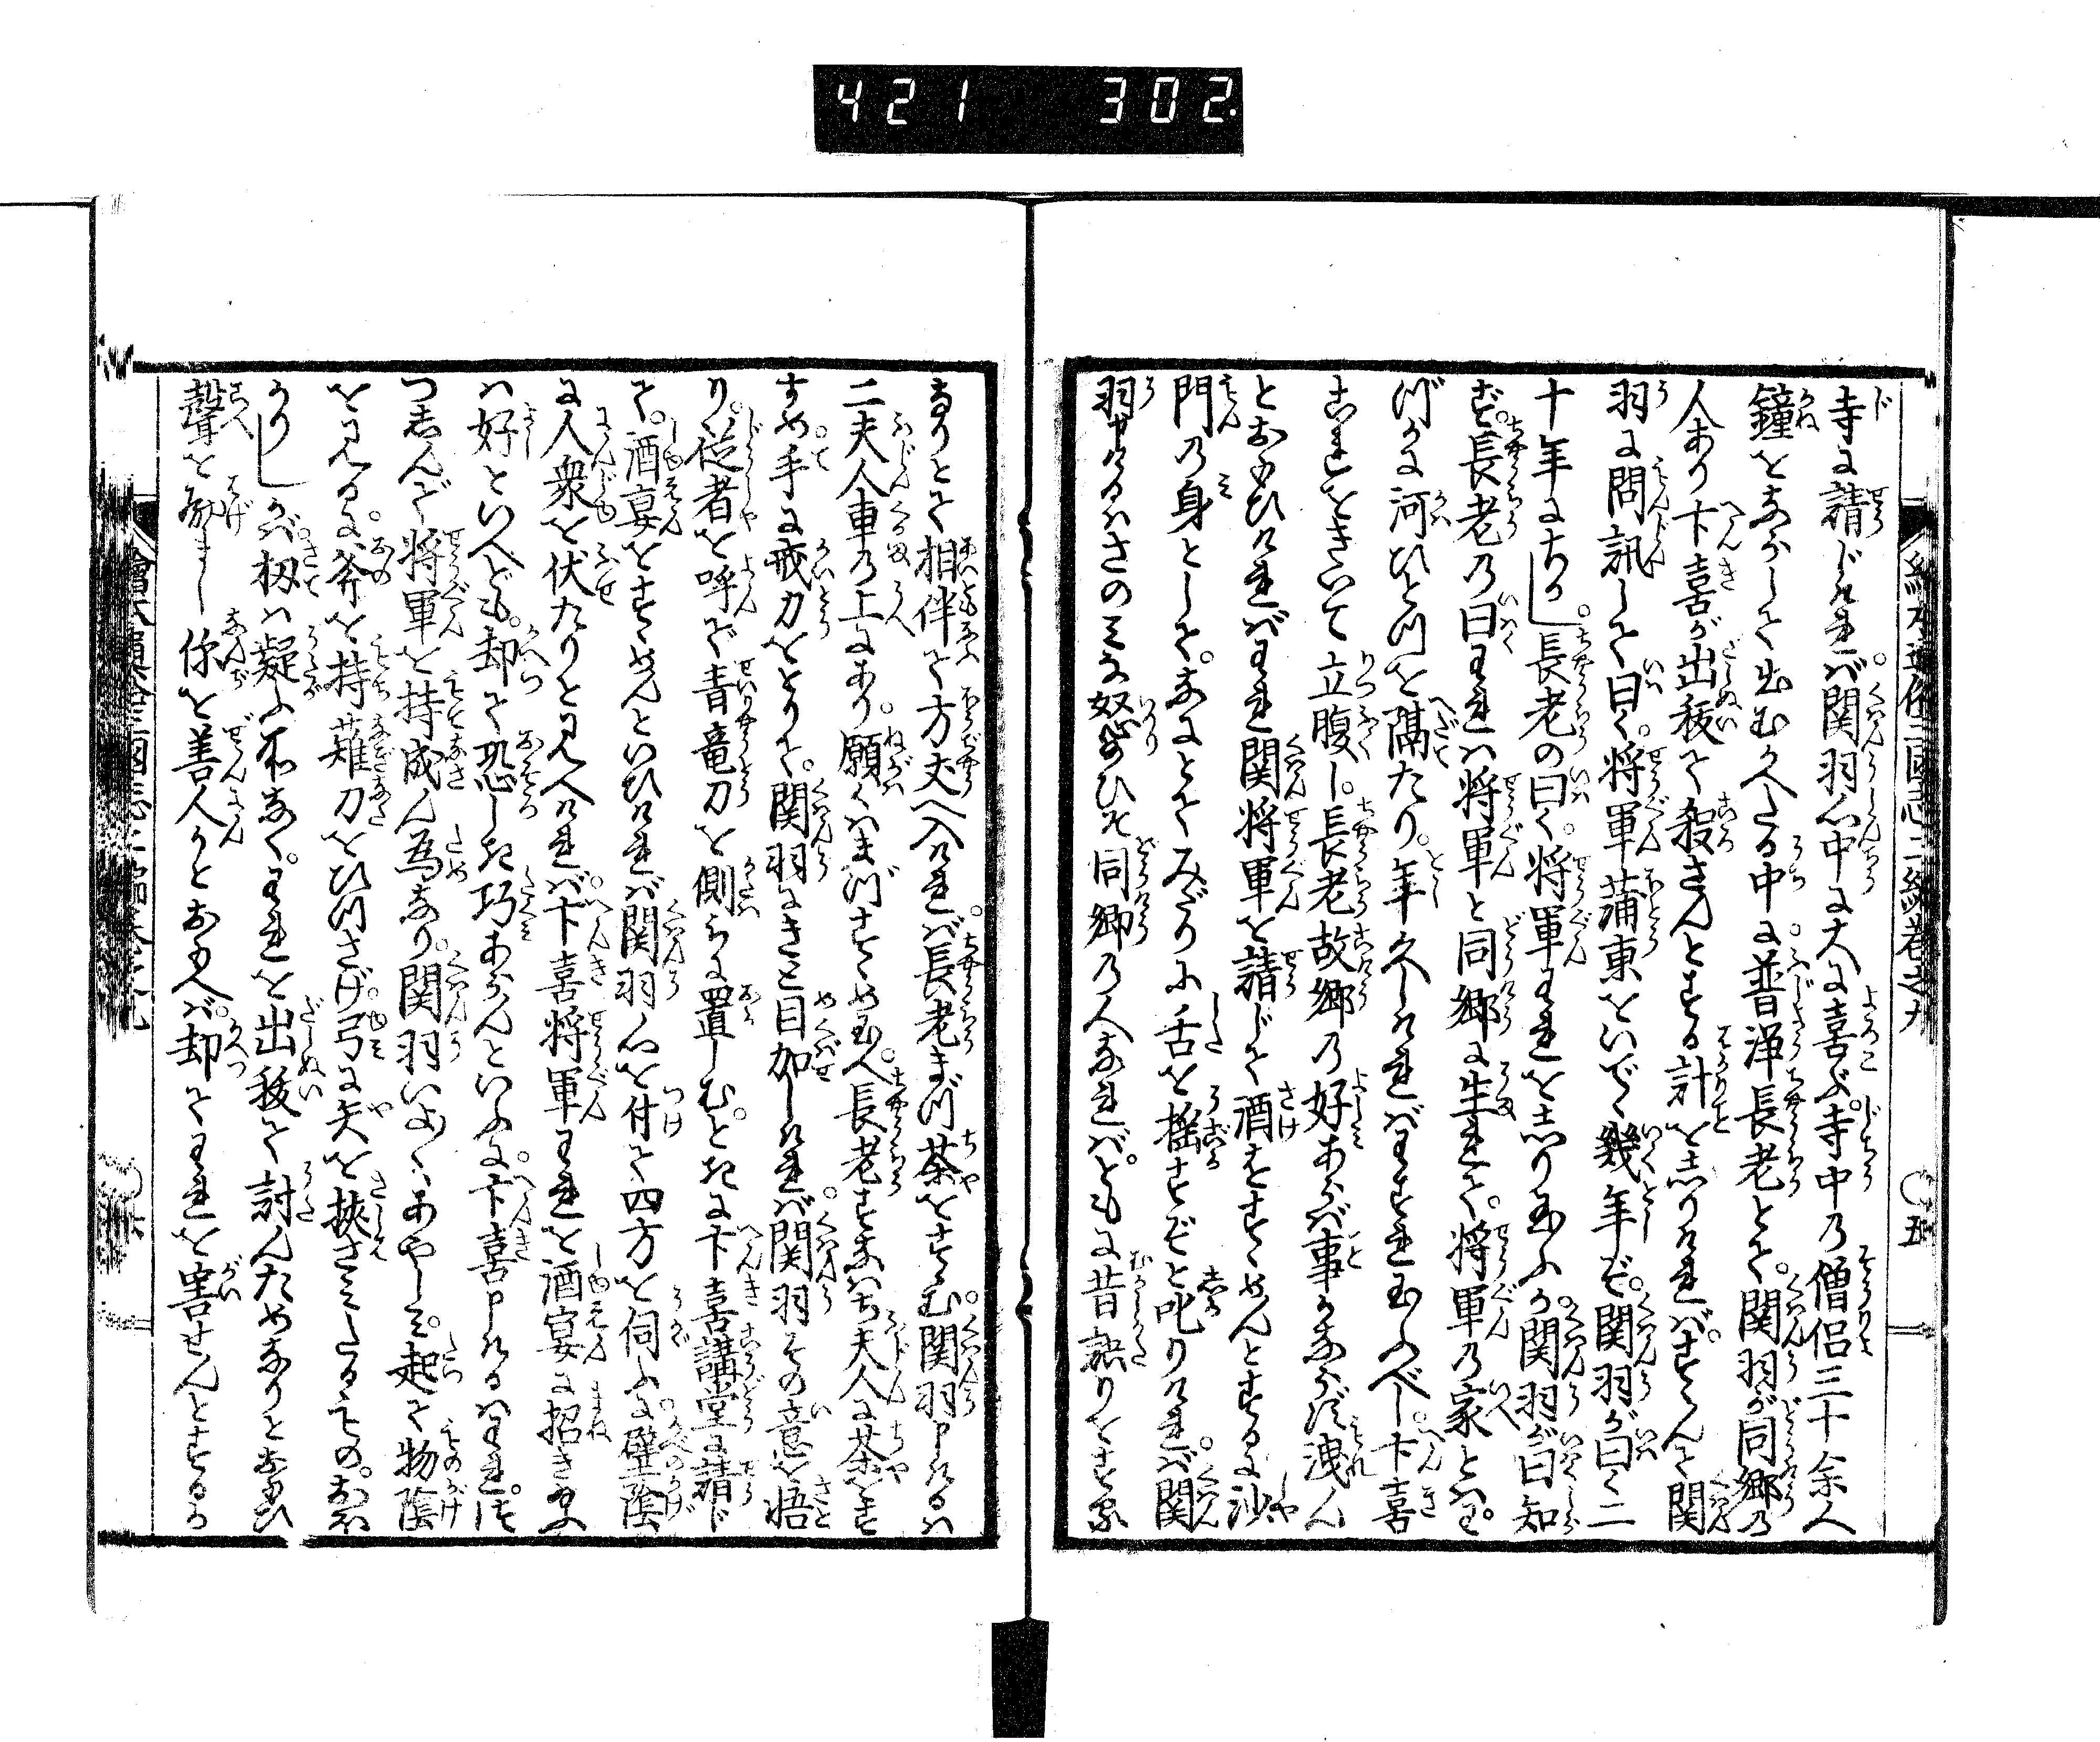 421 302
絵本通俗三國志二編巻之九 ○五
寺に請じければ。関羽心中に大に喜ぶ。寺中の僧侶三十余人
鐘をならして出むかへたる中に。普浄長老とて。関羽が同郷の
人あり卞喜が出抜て殺さんとする計を志りければ。すゝんで関
羽に問訊して曰く。将軍蒲東をいでゝ幾年ぞ。関羽が曰く二
十年にちかし。長老の曰く。将軍われを志り玉ふか。関羽が曰知
ず。長老の曰われは将軍と同郷に生れて。将軍の家とわれ
づかに河ひとつを隔たり。年久しければわすれ玉ふべし。卞喜
これをきいて立腹し。長老故郷の好あらば事かならず洩ん
とおもひければわれ関将軍を請じて酒をすゝめんとするに沙
門の身として。なにとてみだりに舌を揺すぞと叱りければ。関
羽申けるはさのみな怒玉ひそ同郷の人なれば。ともに昔語りをするゝ
なりとて相伴て方丈へ入ければ。長老まづ茶をすゝむ。関羽申けるは
二夫人車の上にあり。願くはまづすゝめ玉へ。長老すなはち夫人に茶をす
すめ手に戒刀をとりて。関羽にきと目加しければ。関羽その意を悟
り。従者を呼で青竜刀を側らに置しむ。ときに卞喜講堂に請じ
て。酒宴をすゝめんといひければ関羽心を付て四方を伺ふに。壁陰
に人衆を伏たりと見へければ。卞喜将軍われを酒宴に招き玉ふ
は好といへども。却て恐しき巧あらんといふに。卞喜申けるはわれ。つゝ
つ志んで将軍を持成ん為なり。関羽いよ〱あやしみ。起て物陰
を見るに。斧を持薙刀をひつさげ。弓に矢を挟さみたるもの。おほ
かりしかば。扨は疑ふ所なく。われを出抜て討んためなりとおもひ
聲を励まし你を善人かとおもへば。却てわれを害せんとするか